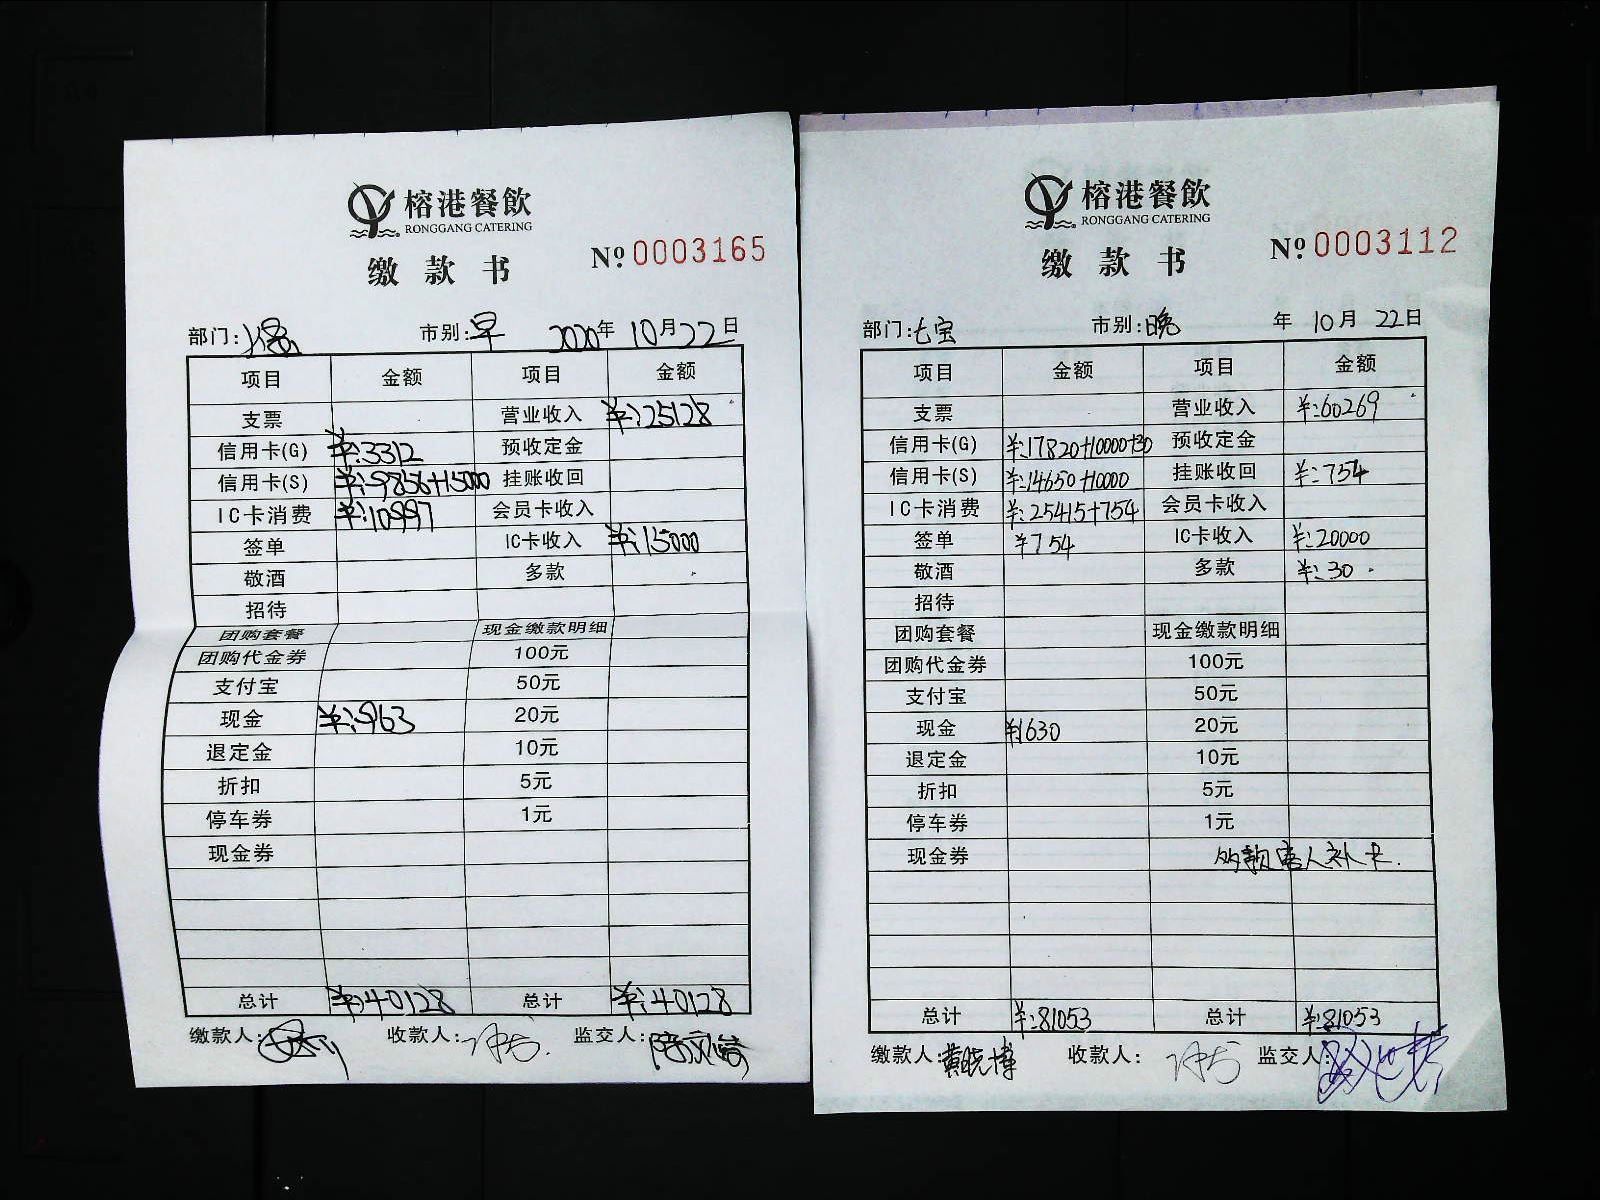 榕港餐飲
RONGGANG CATERING
缴款书
№ 0003165
部门: 市别:早 2020年10月22日
项目 金额 项目 金额
支票 营业收入 ¥:25128
信用卡(G) ¥:3312 预收定金
信用卡(S) ¥:9856+15000 挂账收回
IC卡消费 ¥:10997 会员卡收入
签单 IC卡收入 ¥:15000
敬酒 多款
招待
团购套餐 现金缴款明细
团购代金券 100元
支付宝 50元
现金 ¥:963 20元
退定金 10元
折扣 5元
停车券 1元
现金券
总计 ¥:40128 总计 ¥:40128
缴款人: 收款人: 监交人:
榕港餐飲
RONGGANG CATERING
缴款书
№ 0003112
部门:七宝 市别:晚 年10月22日
项目 金额 项目 金额
支票 营业收入 ¥:60269
信用卡(G) ¥:17820+10000+30 预收定金
信用卡(S) ¥:14650+10000 挂账收回 ¥:754
IC卡消费 ¥:25415+754 会员卡收入
签单 ¥754 IC卡收入 ¥:20000
敬酒 多款 ¥:30
招待
团购套餐 现金缴款明细
团购代金券 100元
支付宝 50元
现金 ¥1630 20元
退定金 10元
折扣 5元
停车券 1元
现金券 多款客人补卡.
总计 ¥:81053 总计 ¥:81053
缴款人:黄晓博 收款人: 监交人: